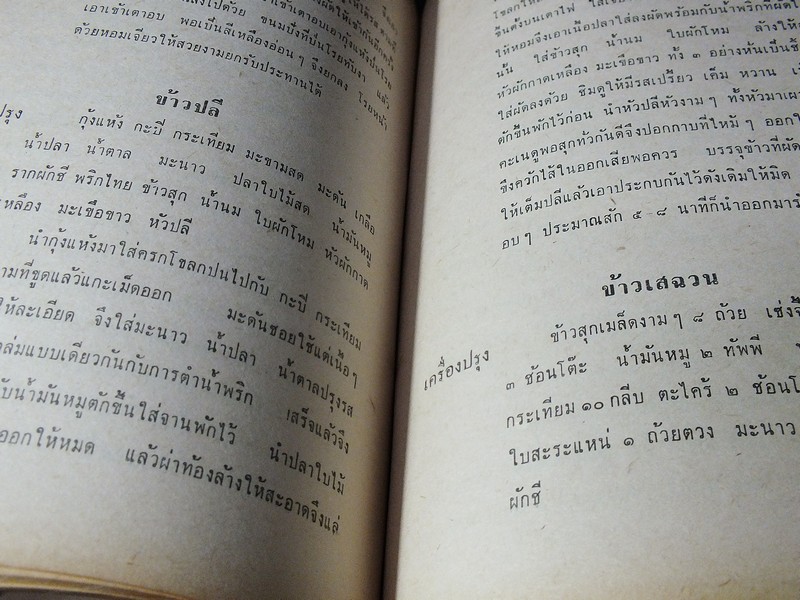 เอาเข้าเตาอบ พอเป็นสีเหลืองอ่อนๆ จึงยกลง โรยหน้า
ด้วยหอมเจียวให้สวยงามยกรับประทานได้
ข้าวปลี
ปรุง กุ้งแห้ง กะปิ กระเทียม มะขามสด มะดัน เกลือ
น้ำปลา น้ำตาล มะนาว ปลาใบไม้สด น้ำมันหมู
รากผักชี พริกไทย ข้าวสุก น้ำนม ใบผักโหม หัวผักกาด
เหลือง มะเขือขาว หัวปลี
นำกุ้งแห้งมาใส่ครกโขลกปนไปกับ กะปิ กระเทียม
ามที่ขูดแล้วแกะเม็ดออก มะดันซอยใช้แต่เนื้อๆ
ห้ละเอียด จึงใส่มะนาว น้ำปลา น้ำตาลปรุงรส
ล่มแบบเดียวกันกับการตำน้ำพริก เสร็จแล้วจึง
ับน้ำมันหมูตักขึ้นใส่จานพักไว้ นำปลาใบไม้
ออกให้หมด แล้วผ่าท้องล้างให้สะอาดจึงแล่
ให้หอมจึงเอาเนื้อปลาใส่ลงผัดพร้อมกับน้ำพริกที่ผัดไ
นั้น ใส่ข้าวสุก น้ำนม ใบผักโหม ล้างให้
หัวผักกาดเหลือง มะเขือขาว ทั้ง ๓ อย่างหั่นเป็นชิ้
ใส่ผัดลงด้วย ชิมดูให้มีรสเปรี้ยว เค็ม หวาน
ตักขึ้นพักไว้ก่อน นำหัวปลีหัวงามๆ ทั้งหัวมาเผา
คะเนดูพอสุกทั่วกันดีจึงปอกกาบที่ไหม้ๆ ออกใ
จึงควักไส้ในออกเสียพอควร บรรจุข้าวที่ผัด
ให้เต็มปลีแล้วเอาประกบกันไว้ดังเดิมให้มิด
อบๆ ประมาณสัก ๕-๘ นาทีก็นำออกมารั
ข้าวเสฉวน
เครื่องปรุง ข้าวสุกเมล็ดงามๆ ๘ ถ้วย เซ่งจี๊
๓ ช้อนโต๊ะ น้ำมันหมู ๒ ทัพพี
กระเทียม ๑๐ กลีบ ตะไคร้ ๒ ช้อนโ
ใบสะระแหน่ ๑ ถ้วยตวง มะนาว
ผักชี